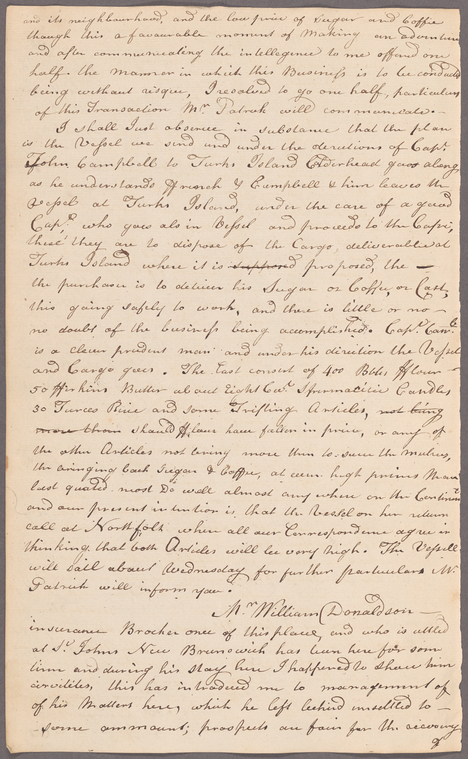 and its neighbourhood, and the low price of Sugar and Coffie
though this a favourable moment of Making an adventure
and after communicating the intellegence to me offered one
half. the manner in which this Business is to be conducted
being without risque, I resolved to go one half, particulars
of this Transaction Mr. Patrick will communicate.
I shall Just observe in substance that the plan
is the Vessel we send under the derections of Capt.
John Campbell to Turks Island goes along
as he understands French & Campbell & him leaves the
Vessel at Turks Island, under the care of a good
Capt. who goes also in Vessel and proceeds to the Cape,
there they are to dispose of the Cargo, deliverable at
Turks Island where it is supposed proposed, the
the purchaser is to deliver his Sugar or Coffee, or Cash,
this going safely to work, and there is little or no
no doubt of the business being accomplished. Capt. Camb
is a clever prudent man and under his direction the Vessel
and Cargo goes. The Cast consist of 400 Bbls Flour
50 Firkins Butter about Eight Cwt. Spermacitie Candles
30 Tierces Rice and some Trifling Articles, not being
more than should Flour have fallen in price, or any of
the other Articles not bring more then to save themselves,
the bringing back Sugar & Coffee, at even high prices
last quoted must do well almost any where on the Continent
and our present intention is, that the Vessel on her return
call at Northfolk when all our Correspondence agree in
thinking, that both Articles will be very high. The Vessell
will Sail about Wednesday for further particulars Mr.
Patrick will inform you.
Mr. William Donaldson
insurance Brocher once of this place, and who is settled
at St. Johns New Brunswick has been here for som
time and during his stay here I happened to shew him
civilities, this has introduced me to management of
of his Matters here, which he left behind unsettled to
some ammount; prospects are fair for the recovery
of